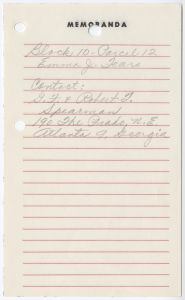 MEMORANDA
Block 10 - Parcel 12
Emma J. Fears
Contact:
G.T. & Robert F.
Spearman
190 The Prado, N.E.
Atlanta 9 Georgia